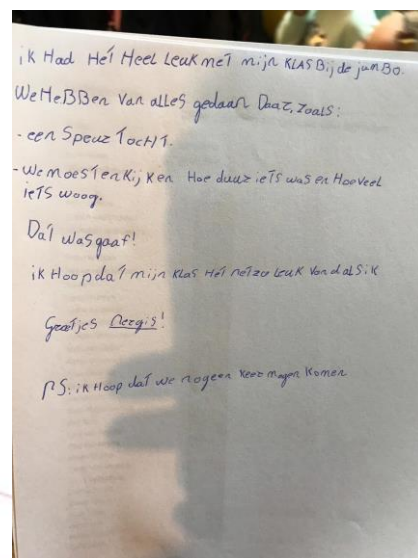 ik Had HeT Heel Leuk meT mijn KLAS Bij de jumBo.
We HeBBen Van alles gedaan Daar, zoals:
- een Speur TochT.
- We moesTen Kijken Hoe duur ieTS was en Hoeveel
ieTS woog.
DaT was gaaf!
ik Hoop daT mijn KLas HeT neT zo Leuk Vond alS ik
GroeTjes Nergis!
PS: ik Hoop daT we nog een keer mogen komen